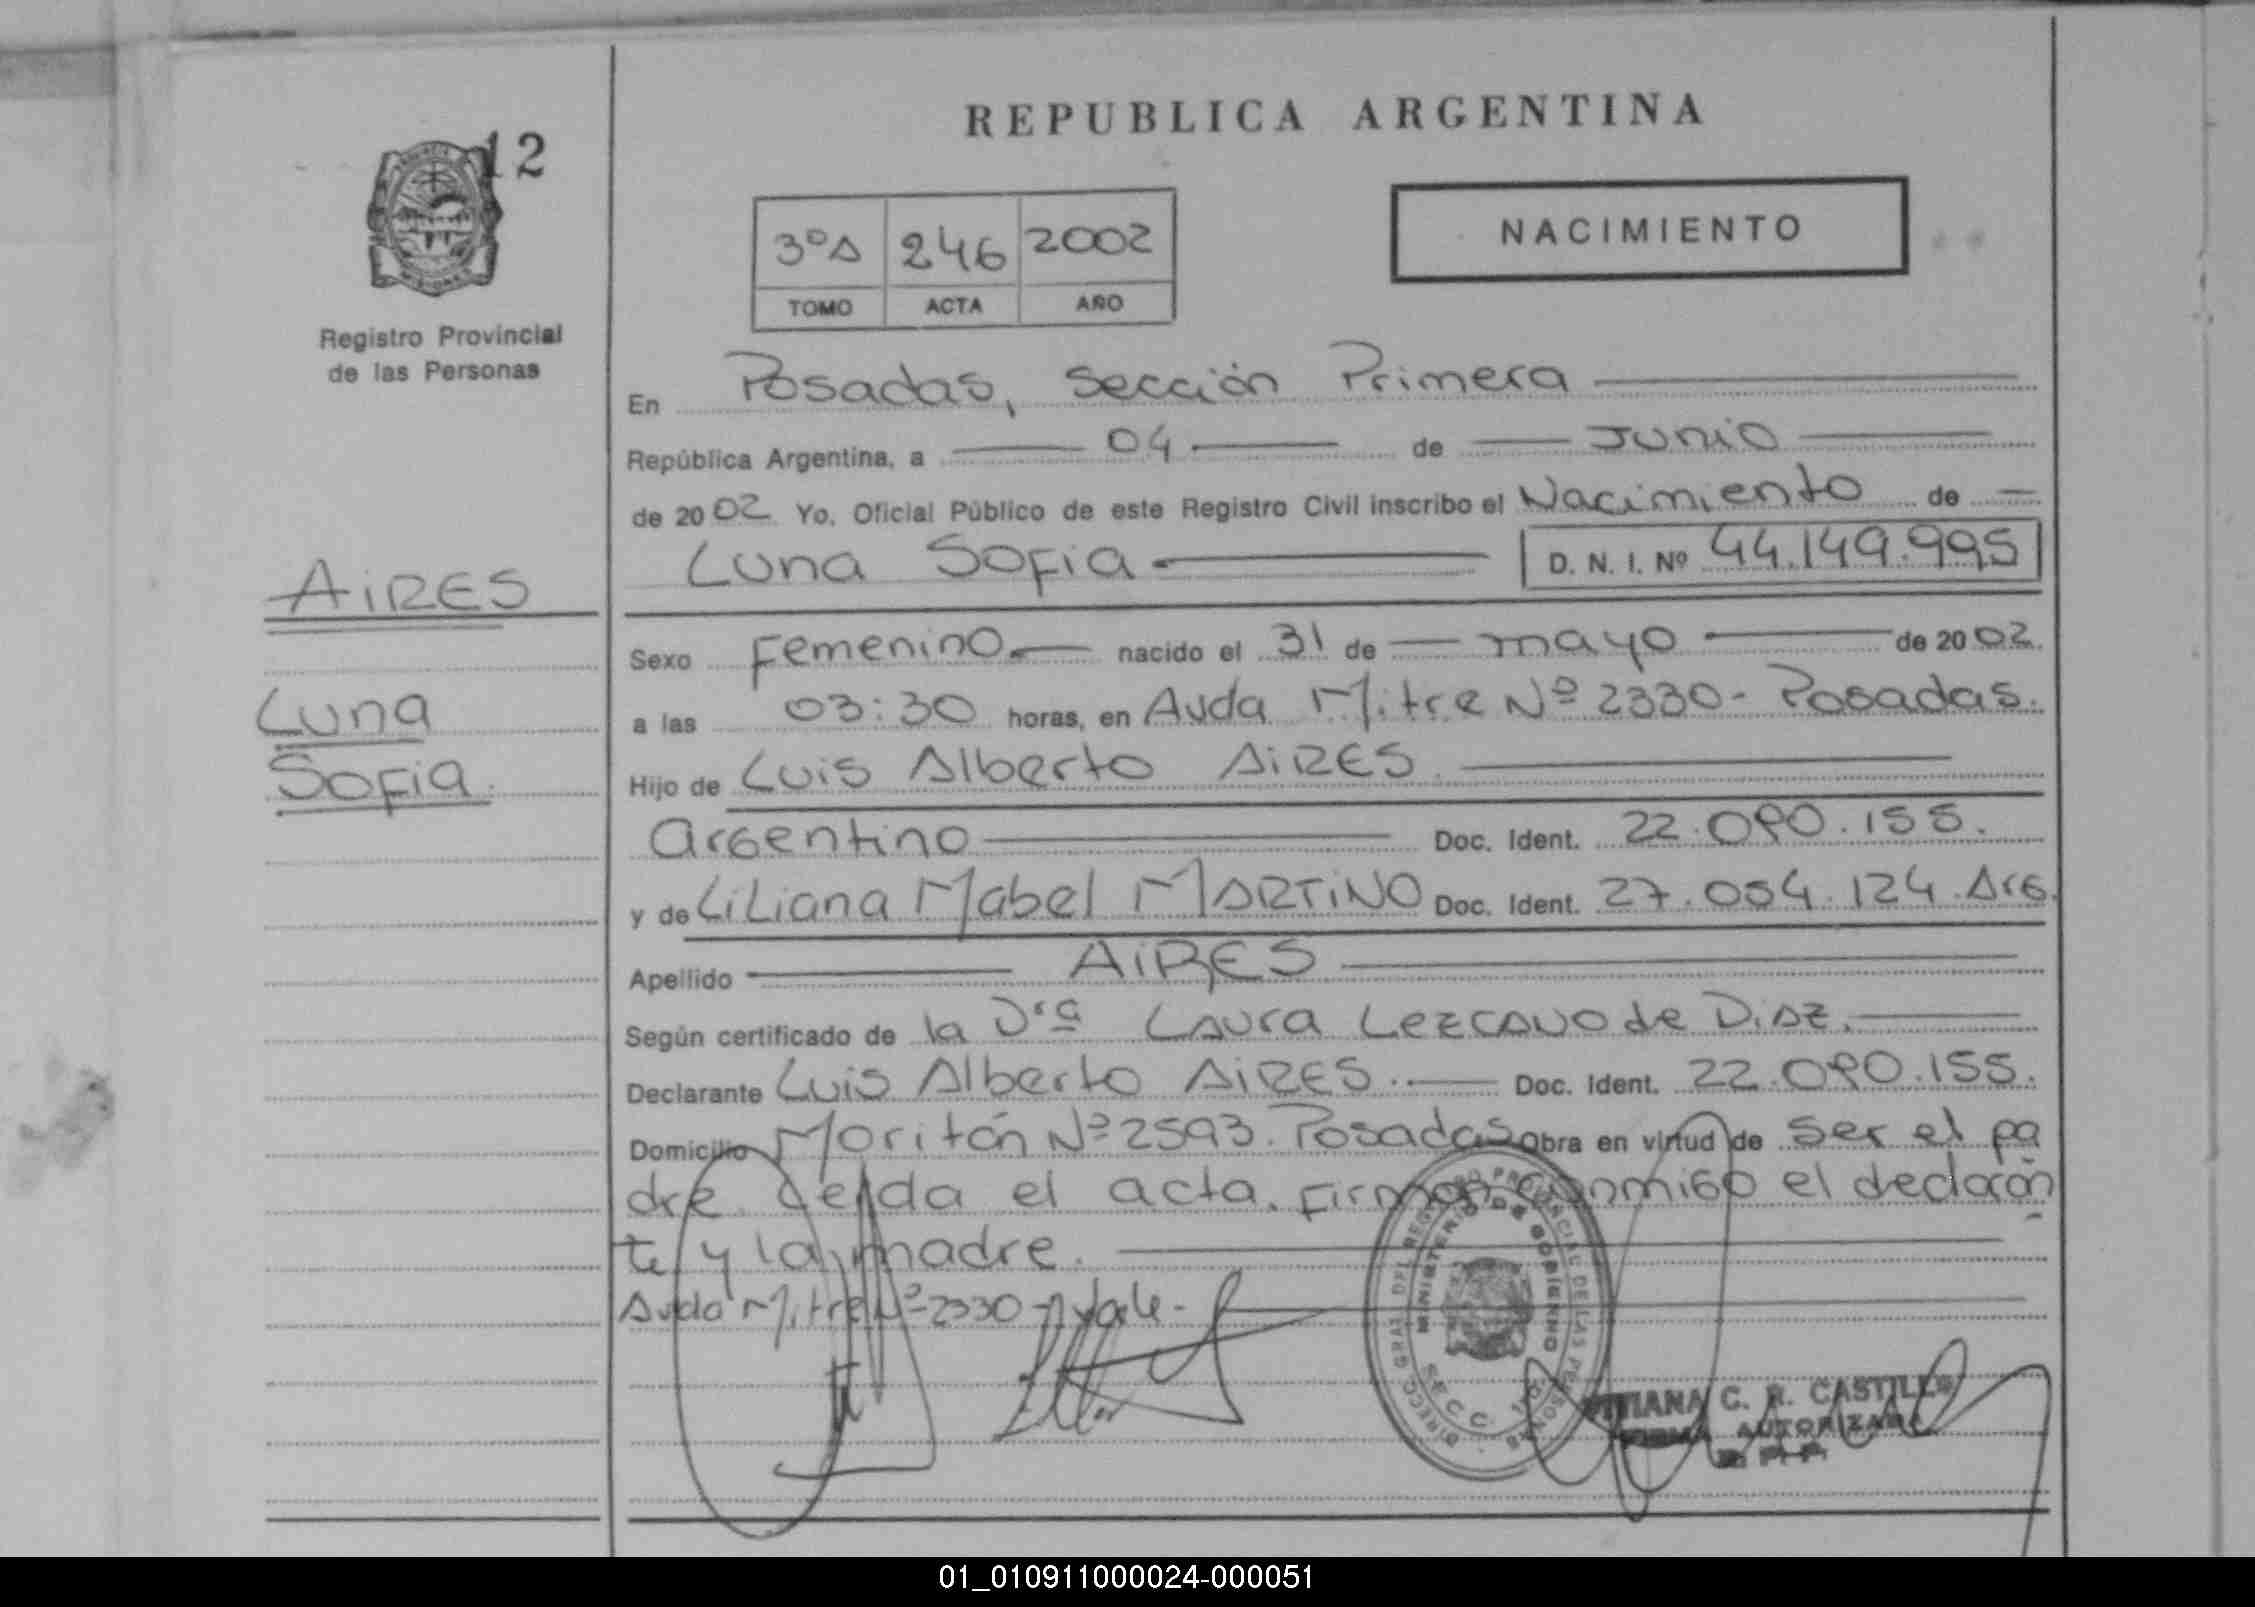 REPUBLICA ARGENTINA
12
NACIMIENTO
3ºA 246 2002
TOMO ACTA AÑO
Registro Provincial
de las Personas
En Posadas, Sección Primera
República Argentina, a 04 de Junio
de 2002 Yo, Oficial Público de este Registro Civil inscribo el Nacimiento de
Luna Sofia D. N. I. Nº 44.149.995
AIRES
Luna
Sofia.
Sexo Femenino nacido el 31 de mayo de 2002.
a las 03:30 horas, en Avda Mitre Nº 2330- Posadas.
Hijo de Luis Alberto AIRES.
Argentino Doc. Ident. 22.090.155.
y de Liliana Mabel MARTINO Doc. Ident. 27.054.124. Arg.
Apellido AIRES
Según certificado de la Drª Laura Lezcano de Diaz.
Declarante Luis Alberto AIRES. Doc. Ident. 22.090.155.
Domicilio Moritán Nº 2593. Posadas Obra en virtud de ser el pa
dre. Leida el acta. Firman conmigo el declaran
te y la madre.
Avda Mitre Nº 2330- Vale-
DIRECC. GRAL. DEL REGISTRO PROVINCIAL DE LAS PERSONAS
MINISTERIO DE GOBIERNO
SECC. 1º
C. R. CASTILLO
FIRMA AUTORIZADA
01_010911000024-000051